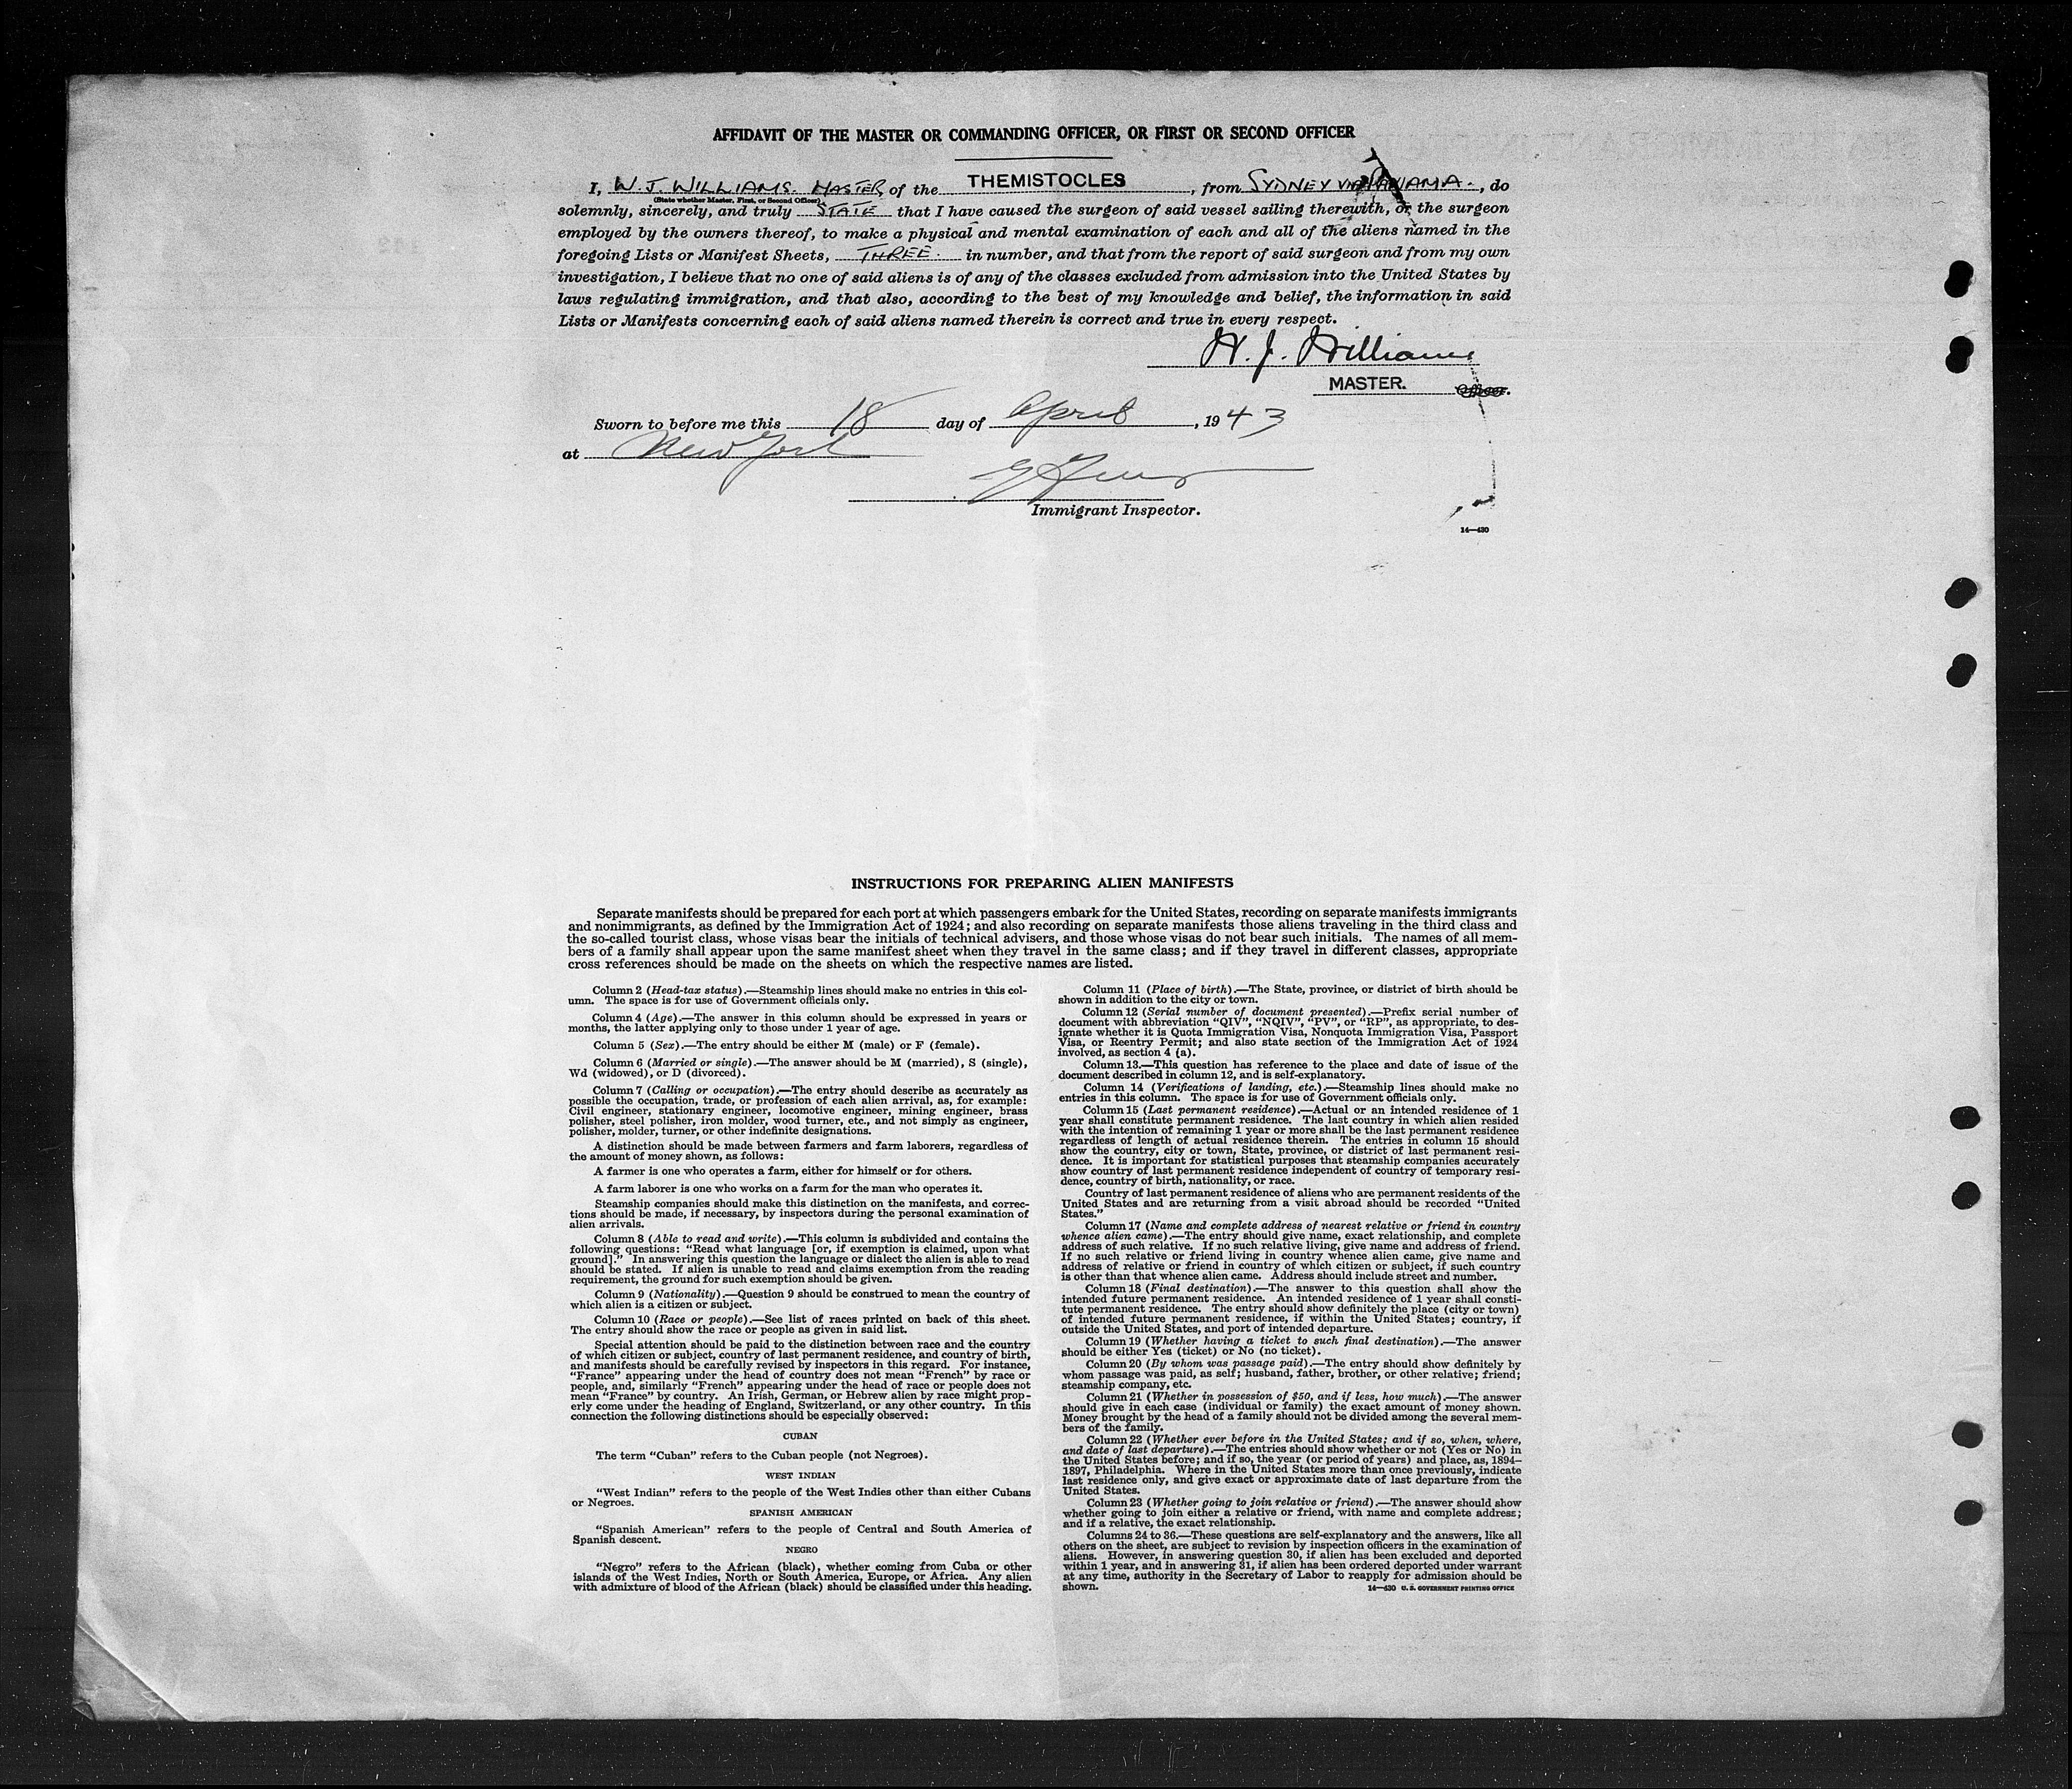 AFFIDAVIT OF THE MASTER OR COMMANDING OFFICER, OR FIRST OR SECOND OFFICER
I, W. J. WILLIAMS. MASTER of the THEMISTOCLES, from SYDNEY VIA PANAMA., do
(State whether Master, First, or Second Officer)
solemnly, sincerely, and truly STATE that I have caused the surgeon of said vessel sailing therewith, or the surgeon
employed by the owners thereof, to make a physical and mental examination of each and all of the aliens named in the
foregoing Lists or Manifest Sheets, THREE. in number, and that from the report of said surgeon and from my own
investigation, I believe that no one of said aliens is of any of the classes excluded from admission into the United States by
laws regulating immigration, and that also, according to the best of my knowledge and belief, the information in said
Lists or Manifests concerning each of said aliens named therein is correct and true in every respect.
W. J. Williams
MASTER. Officer.
Sworn to before me this 18 day of April, 1943
at New York
Immigrant Inspector.
14—430
INSTRUCTIONS FOR PREPARING ALIEN MANIFESTS
Separate manifests should be prepared for each port at which passengers embark for the United States, recording on separate manifests immigrants
and nonimmigrants, as defined by the Immigration Act of 1924; and also recording on separate manifests those aliens traveling in the third class and
the so-called tourist class, whose visas bear the initials of technical advisers, and those whose visas do not bear such initials. The names of all mem-
bers of a family shall appear upon the same manifest sheet when they travel in the same class; and if they travel in different classes, appropriate
cross references should be made on the sheets on which the respective names are listed.
Column 2 (Head-tax status).—Steamship lines should make no entries in this col-
umn. The space is for use of Government officials only.
Column 4 (Age).—The answer in this column should be expressed in years or
months, the latter applying only to those under 1 year of age.
Column 5 (Sex).—The entry should be either M (male) or F (female).
Column 6 (Married or single).—The answer should be M (married), S (single),
Wd (widowed), or D (divorced).
Column 7 (Calling or occupation).—The entry should describe as accurately as
possible the occupation, trade, or profession of each alien arrival, as, for example:
Civil engineer, stationary engineer, locomotive engineer, mining engineer, brass
polisher, steel polisher, iron molder, wood turner, etc., and not simply as engineer,
polisher, molder, turner, or other indefinite designations.
A distinction should be made between farmers and farm laborers, regardless of
the amount of money shown, as follows:
A farmer is one who operates a farm, either for himself or for others.
A farm laborer is one who works on a farm for the man who operates it.
Steamship companies should make this distinction on the manifests, and correc-
tions should be made, if necessary, by inspectors during the personal examination of
alien arrivals.
Column 8 (Able to read and write).—This column is subdivided and contains the
following questions: "Read what language [or, if exemption is claimed, upon what
ground]." In answering this question the language or dialect the alien is able to read
should be stated. If alien is unable to read and claims exemption from the reading
requirement, the ground for such exemption should be given.
Column 9 (Nationality).—Question 9 should be construed to mean the country of
which alien is a citizen or subject.
Column 10 (Race or people).—See list of races printed on back of this sheet.
The entry should show the race or people as given in said list.
Special attention should be paid to the distinction between race and the country
of which citizen or subject, country of last permanent residence, and country of birth,
and manifests should be carefully revised by inspectors in this regard. For instance,
"France" appearing under the head of country does not mean "French" by race or
people, and, similarly "French" appearing under the head of race or people does not
mean "France" by country. An Irish, German, or Hebrew alien by race might prop-
erly come under the heading of England, Switzerland, or any other country. In this
connection the following distinctions should be especially observed:
CUBAN
The term "Cuban" refers to the Cuban people (not Negroes).
WEST INDIAN
"West Indian" refers to the people of the West Indies other than either Cubans
or Negroes.
SPANISH AMERICAN
"Spanish American" refers to the people of Central and South America of
Spanish descent.
NEGRO
"Negro" refers to the African (black), whether coming from Cuba or other
islands of the West Indies, North or South America, Europe, or Africa. Any alien
with admixture of blood of the African (black) should be classified under this heading.
Column 11 (Place of birth).—The State, province, or district of birth should be
shown in addition to the city or town.
Column 12 (Serial number of document presented).—Prefix serial number of
document with abbreviation "QIV", "NQIV", "PV", or "RP", as appropriate, to des-
ignate whether it is Quota Immigration Visa, Nonquota Immigration Visa, Passport
Visa, or Reentry Permit; and also state section of the Immigration Act of 1924
involved, as section 4 (a).
Column 13.—This question has reference to the place and date of issue of the
document described in column 12, and is self-explanatory.
Column 14 (Verifications of landing, etc.).—Steamship lines should make no
entries in this column. The space is for use of Government officials only.
Column 15 (Last permanent residence).—Actual or an intended residence of 1
year shall constitute permanent residence. The last country in which alien resided
with the intention of remaining 1 year or more shall be the last permanent residence
regardless of length of actual residence therein. The entries in column 15 should
show the country, city or town, State, province, or district of last permanent resi-
dence. It is important for statistical purposes that steamship companies accurately
show country of last permanent residence independent of country of temporary resi-
dence, country of birth, nationality, or race.
Country of last permanent residence of aliens who are permanent residents of the
United States and are returning from a visit abroad should be recorded "United
States."
Column 17 (Name and complete address of nearest relative or friend in country
whence alien came).—The entry should give name, exact relationship, and complete
address of such relative. If no such relative living, give name and address of friend.
If no such relative or friend living in country whence alien came, give name and
address of relative or friend in country of which citizen or subject, if such country
is other than that whence alien came. Address should include street and number.
Column 18 (Final destination).—The answer to this question shall show the
intended future permanent residence. An intended residence of 1 year shall consti-
tute permanent residence. The entry should show definitely the place (city or town)
of intended future permanent residence, if within the United States; country, if
outside the United States, and port of intended departure.
Column 19 (Whether having a ticket to such final destination).—The answer
should be either Yes (ticket) or No (no ticket).
Column 20 (By whom was passage paid).—The entry should show definitely by
whom passage was paid, as self; husband, father, brother, or other relative; friend;
steamship company, etc.
Column 21 (Whether in possession of $50, and if less, how much).—The answer
should give in each case (individual or family) the exact amount of money shown.
Money brought by the head of a family should not be divided among the several mem-
bers of the family.
Column 22 (Whether ever before in the United States; and if so, when, where,
and date of last departure).—The entries should show whether or not (Yes or No) in
the United States before; and if so, the year (or period of years) and place, as, 1894–
1897, Philadelphia. Where in the United States more than once previously, indicate
last residence only, and give exact or approximate date of last departure from the
United States.
Column 23 (Whether going to join relative or friend).—The answer should show
whether going to join either a relative or friend, with name and complete address;
and if a relative, the exact relationship.
Columns 24 to 36.—These questions are self-explanatory and the answers, like all
others on the sheet, are subject to revision by inspection officers in the examination of
aliens. However, in answering question 30, if alien has been excluded and deported
within 1 year, and in answering 31, if alien has been ordered deported under warrant
at any time, authority in the Secretary of Labor to reapply for admission should be
shown.
14—430 U. S. GOVERNMENT PRINTING OFFICE